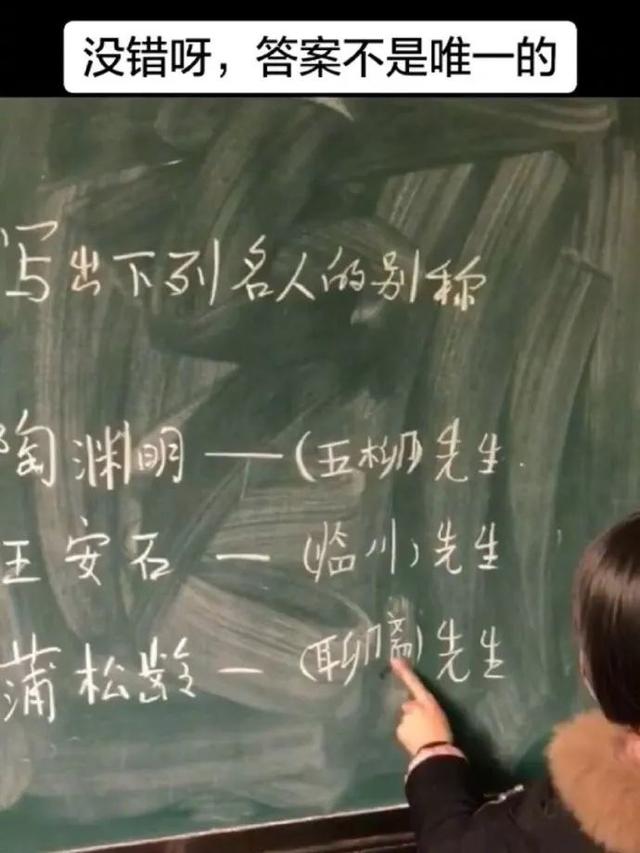 没错呀，答案不是唯一的
写出下列名人的别称
陶渊明——（五柳）先生.
王安石—（临川）先生
蒲松龄—（聊斋）先生